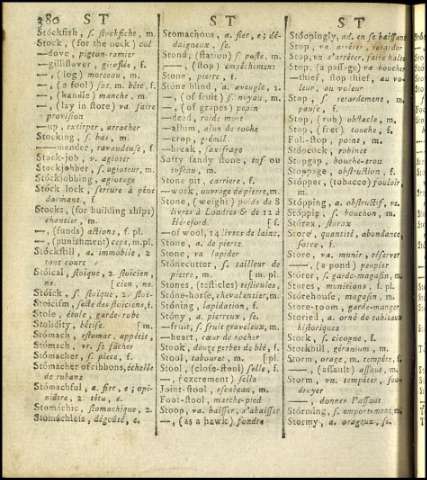 280 S T
S T
S T
Stóckfish, s. stockfiche, m.
Stock, (for the neck) col
—dove, pigeon-ramier
—gilliflower, giroflée, f.
—, (log) morceau, m.
—, (a fool) sot, m. bête, f.
—, (handle) manche, m.
—, (lay in store) va. faire
provision
—up, extirper, arracher
Stócking, s. bas, m.
—mender, ravaudeuse, f.
Stock-job, v. agioter
Stóckjobber, s. agioteur, m.
Stóckjobbing, agiotage
Stock lock, serrure à pêne
dormant, f.
Stocks, (for building ships)
chantier, m.
—, (funds) actions, f. pl.
—, (punishment) ceps, m.pl.
Stóckstill, a. immobile, 2
tout court
Stóical, stoïque, 2. stoïcien,
ne. [cien, ne.
Stóick, s. stoïque, 2. stoï-
Stóicism, secte des stoïciens, f.
Stole, étole, garde-robe
Stolídity, bêtise. [m.
Stómach, estomac, appétit,
Stómach, vr. se fâcher
Stómacher, s. pieca, f.
Stómacher of ribbons, échelle
de rubans
Stómachful, a. fier, e; opi-
niâtre, 2. têtu, e.
Stomáchic, stomachique, 2.
Stómachless, dégoûté, e.
Stómachous, a. fier, e; dé-
daigneux, se.
Stond, (station) s. poste, m.
—, (stop) empêchement
Stone, pierre, f.
Stone blind, a. aveugle, 2.
—, (of fruit) s. noyau, m.
—, (of grapes) pepin
—dead, roide mort
—alum, alun de roche
—crop, pénil
—break, saxifrage
Salty sandy stone, tuf ou
tuffeau, m.
Stone pit, carriere, f.
—work, ouvrage de pierre, m.
Stone, (weight) poids de 8
livres à Londres & de 12 à
Héreford. [f.
—of wool, 14 livres de laine,
Stone, a. de pierre
Stone, va lapider
Stónecutter, s. tailleur de
pierre, m. [m. pl.
Stones, (testicles) testicules,
Stóne-horse, chevalentier, m.
Stóning, lapidation, f.
Stóny, a. pierreux, se.
—fruit, s. fruit graveleux, m.
—heart, cœur de rocher
Stook, douze gerbes de blé, f.
Stool, tabouret, m. [pl.
Stool, (close-stool) selle, f.
—, (excrement) selle
Joint-stool, escabeau, m.
Foot-stool, marche-pied
Stoop, va. baisser, s'abaisser
—, (as a hawk) fondre
Stóopingly, ad. en se baissant
Stop, va. arrêter, retarder
Stop, vn. s'arrêter, faire halte
Stop, (a passage) va boucher
—thief, stop thief, au vo-
leur, au voleur
Stop, s. retardement, m.
pause, f.
Stop, (rub) obstacle, m.
Stop, (fret) touche, f.
Full-stop, point, m.
Stópcock, robinet
Stópgap, bouche-trou
Stóppage, obstruction, f.
Stópper, (tobacco) fouloir,
m.
Stópping, a. obstructif, ve.
Stópple, s. bouchon, m.
Stórax, storax
Store, quantité, abondance,
force, f.
Store, va. munir, réserver
—, (a pond) peupler
Stórer, s. garde-magasin, m.
Stores, munitions, f. pl.
Stórehouse, magasin, m.
Store-room, garde-manger
Stóried, a. orné de tableaux
historiques
Stork, s. cicogne, f.
Storkbill, géranium, m.
Storm, orage, m. tempête, f.
—, (assault) assaut, m.
Storm, vn. tempêter, fou-
droyer
—, donner l'assaut
Stórming, s. emportement, m.
Stormy, a. orageux, se.